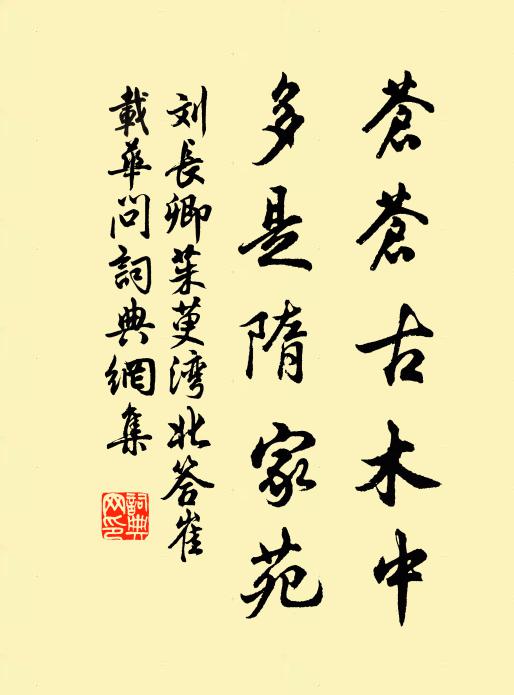 蒼蒼古木中
多是隋家苑
刘長卿茱萸湾北答崔
載華问詞典網集
詞典
网印